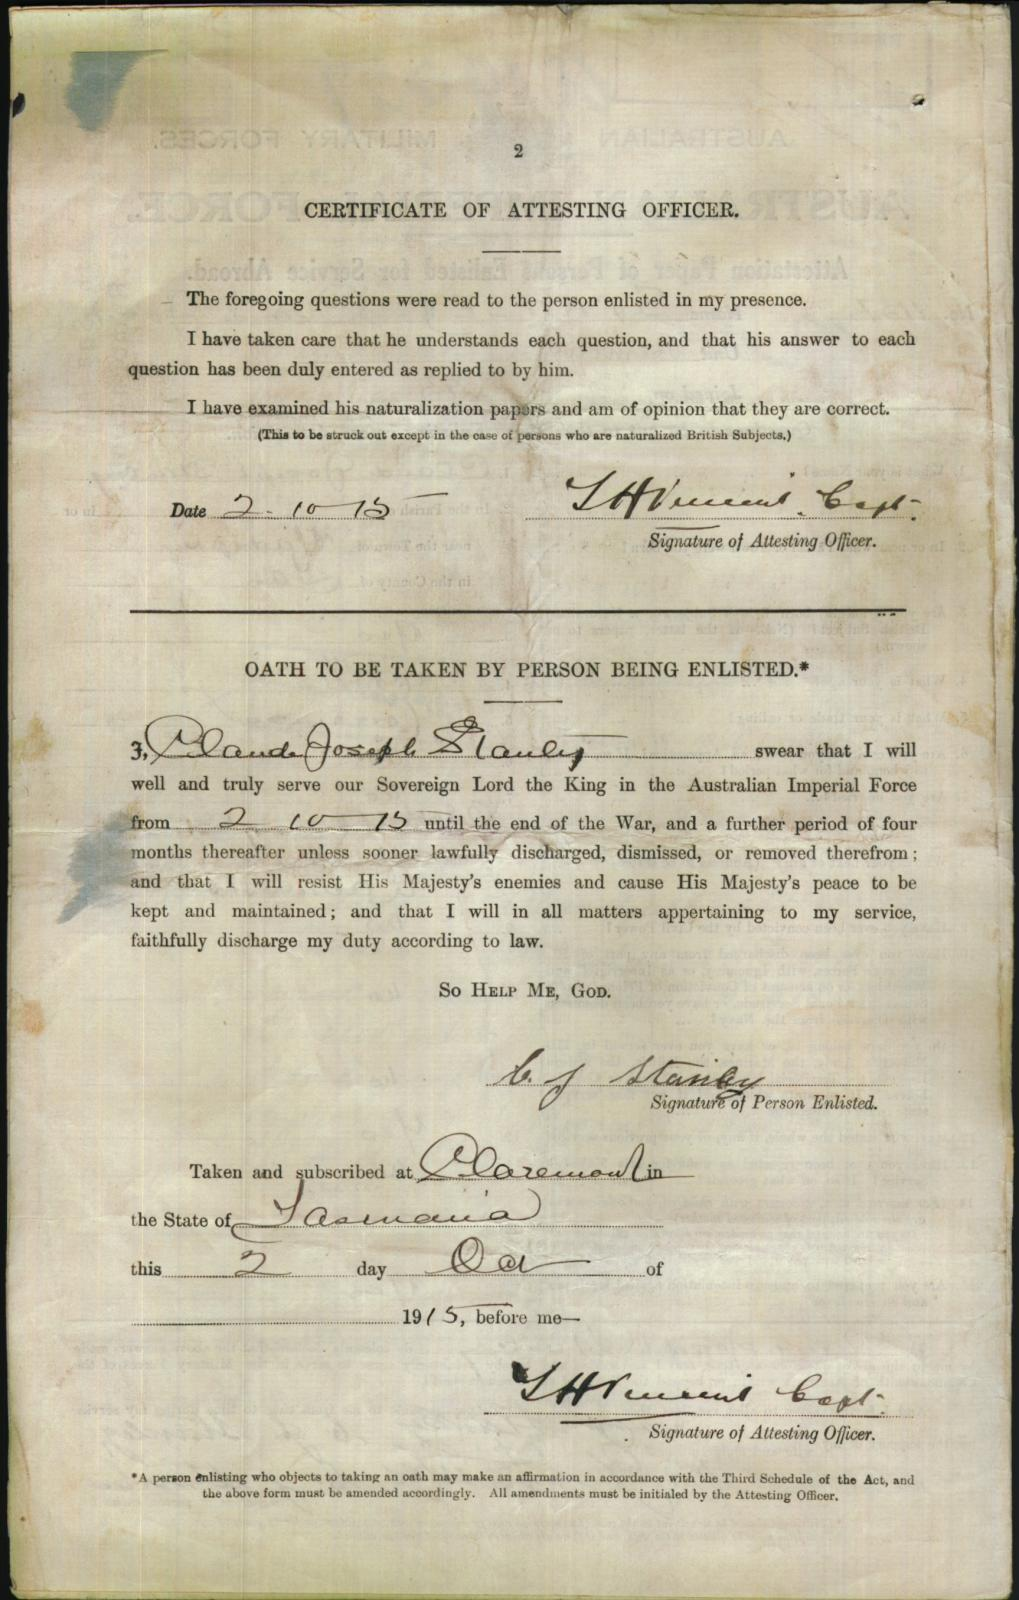 2
CERTIFICATE OF ATTESTING OFFICER.
The foregoing questions were read to the person enlisted in my presence.
I have taken care that he understands each question, and that his answer to each
question has been duly entered as replied to by him.
I have examined his naturalization papers and am of opinion that they are correct.
(This to be struck out except in the case of persons who are naturalized British Subjects.)
Date 2 - 10 - 15 L H Vincent. Capt.
Signature of Attesting Officer.
OATH TO BE TAKEN BY PERSON BEING ENLISTED.*
I, Claude Joseph Stanley swear that I will
well and truly serve our Sovereign Lord the King in the Australian Imperial Force
from 2 10 15 until the end of the War, and a further period of four
months thereafter unless sooner lawfully discharged, dismissed, or removed therefrom;
and that I will resist His Majesty's enemies and cause His Majesty's peace to be
kept and maintained; and that I will in all matters appertaining to my service,
faithfully discharge my duty according to law.
SO HELP ME, GOD.
C. J Stanley
Signature of Person Enlisted.
Taken and subscribed at Claremont in
the State of Tasmania
this 2 day Oct of
1915, before me—
L H Vincent Capt.
Signature of Attesting Officer.
*A person enlisting who objects to taking an oath may make an affirmation in accordance with the Third Schedule of the Act, and
the above form must be amended accordingly. All amendments must be initialed by the Attesting Officer.